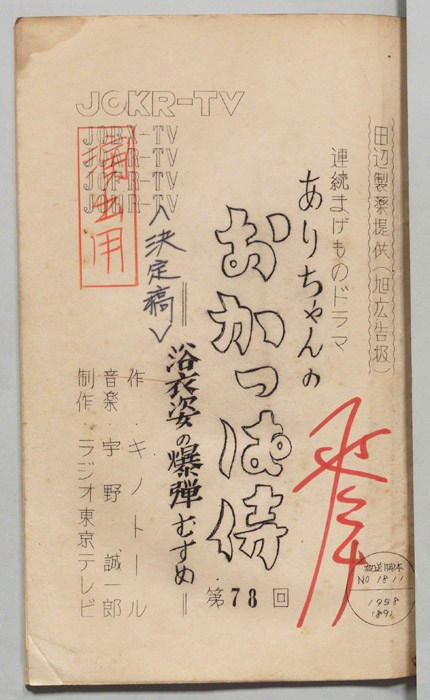 田辺製薬提供(旭広告扱)
連続まげものドラマ
ありちゃんの
おかっぱ侍
第78回
浴衣姿の爆弾むすめ
<決定稿>
作・キノトール
音楽・宇野誠一郎
制作・ラジオ東京テレビ
JOKR-TV
JOBX-TV
JOFR-TV
JOHR-TV
演出用
NO 1811
1958